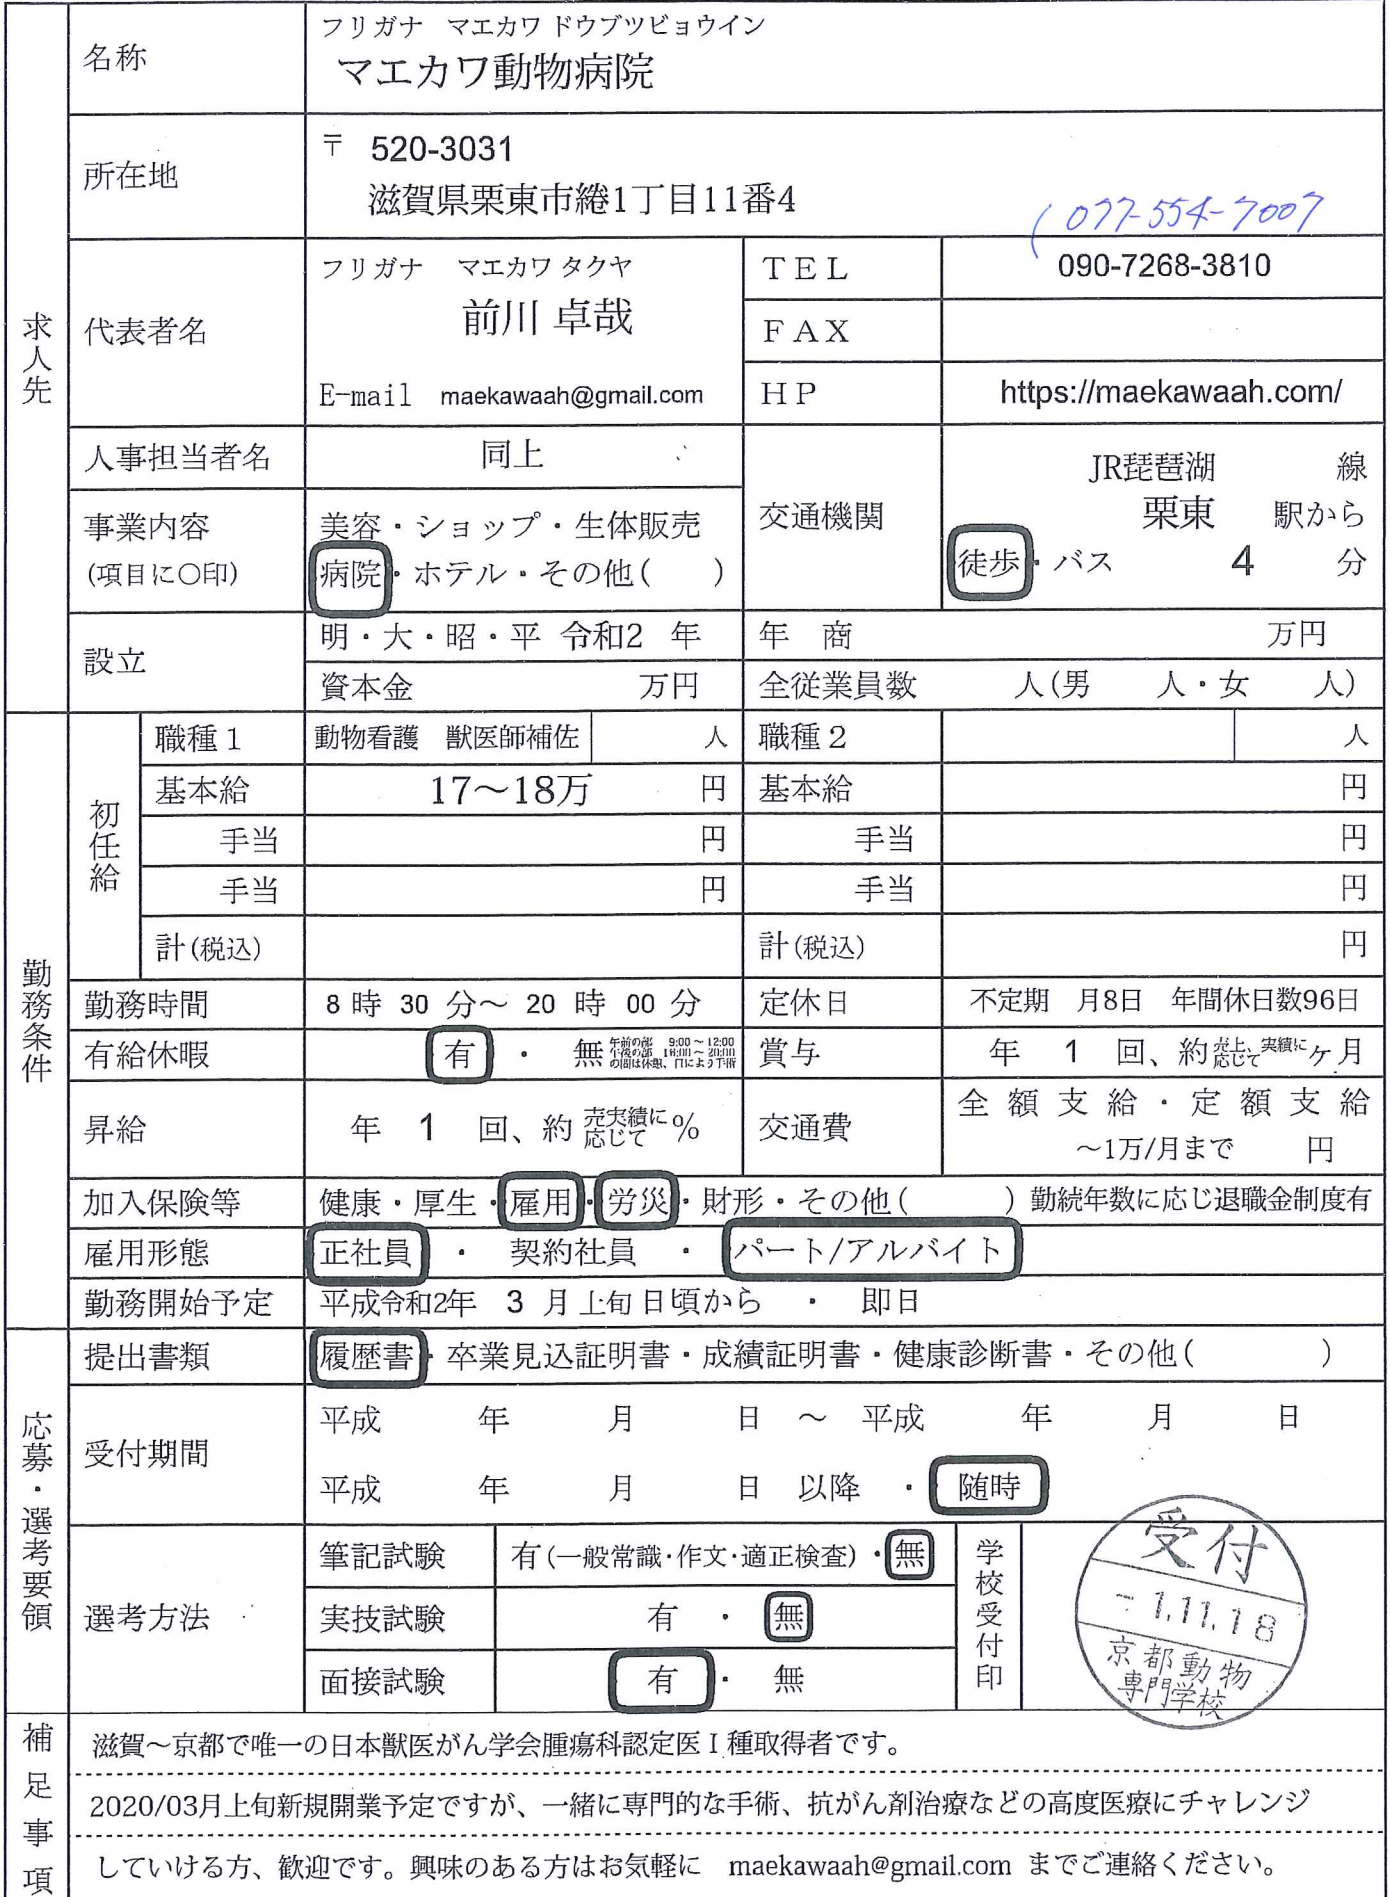 求人先
名称
フリガナ マエカワ ドウブツビョウイン
マエカワ動物病院
所在地
〒 520-3031
滋賀県栗東市綣1丁目11番4
(077-554-7007
代表者名
フリガナ マエカワ タクヤ
前川 卓哉
E-mail maekawaah@gmail.com
TEL 090-7268-3810
FAX
HP https://maekawaah.com/
人事担当者名 同上
事業内容
(項目に〇印)
美容・ショップ・生体販売
病院・ホテル・その他( )
交通機関
JR琵琶湖 線
栗東 駅から
徒歩・バス 4 分
設立
明・大・昭・平 令和2 年
年 商 万円
資本金 万円
全従業員数 人(男 人・女 人)
勤務条件
初任給
職種1 動物看護 獣医師補佐 人 職種2 人
基本給 17～18万 円 基本給 円
手当 円 手当 円
手当 円 手当 円
計(税込) 計(税込) 円
勤務時間 8 時 30 分～ 20 時 00 分 定休日 不定期 月8日 年間休日数96日
有給休暇 有 ・ 無
午前の部 9:00～12:00
午後の部 16:00～20:00
の間は休憩、日により手術
賞与 年 1 回、約 売上、実績に応じて ケ月
昇給 年 1 回、約 売実績に応じて %
交通費
全額支給・定額支給
～1万/月まで 円
加入保険等 健康・厚生・雇用・労災・財形・その他( ) 勤続年数に応じ退職金制度有
雇用形態 正社員 ・ 契約社員 ・ パート/アルバイト
勤務開始予定 平成令和2年 3 月 上旬 日頃から ・ 即日
応募・選考要領
提出書類 履歴書・卒業見込証明書・成績証明書・健康診断書・その他( )
受付期間
平成 年 月 日 ～ 平成 年 月 日
平成 年 月 日 以降 ・ 随時
選考方法
筆記試験 有(一般常識・作文・適正検査)・無
実技試験 有 ・ 無
面接試験 有 ・ 無
学校受付印
受付
-1.11.18
京都動物
専門学校
補足事項
滋賀～京都で唯一の日本獣医がん学会腫瘍科認定医Ⅰ種取得者です。
2020/03月上旬新規開業予定ですが、一緒に専門的な手術、抗がん剤治療などの高度医療にチャレンジ
していける方、歓迎です。興味のある方はお気軽に maekawaah@gmail.com までご連絡ください。